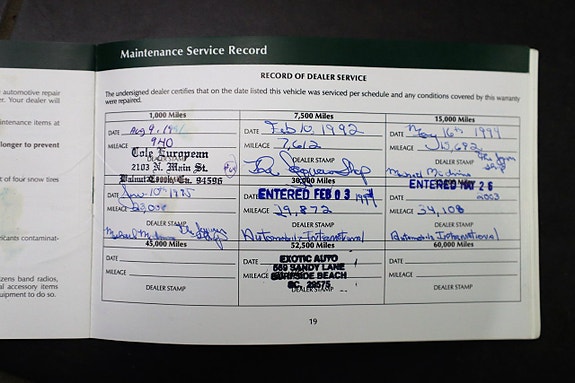 Maintenance Service Record
RECORD OF DEALER SERVICE
automotive repair
er. Your dealer will
The undersigned dealer certifies that on the date listed this vehicle was serviced per schedule and any conditions covered by this warranty
were repaired.
aintenance items at
longer to prevent
of four snow tires
icants contaminat-
zens band radios,
al accessory items
uipment to do so.
1,000 Miles
DATE Aug 9, 19
MILEAGE 940
DEALER STAMP
Cole European
2103 N. Main St.
Walnut Creek, Ca. 94596
7,500 Miles
DATE Feb 10, 1992
MILEAGE 7,612
DEALER STAMP
The Jaguar Shop
15,000 Miles
DATE May 16th 1994
MILEAGE
DEALER STAMP
The Jaguar
Shop
DATE Jan 10th 1995
MILEAGE
DEALER STAMP
The Jaguar
Shop
30,000 Miles
DATE ENTERED FEB 03 1999
MILEAGE 29,872
DEALER STAMP
Automobili International
DATE ENTERED MAY 26 2003
MILEAGE 34,108
DEALER STAMP
Automobili International
45,000 Miles
DATE
MILEAGE
DEALER STAMP
52,500 Miles
DATE
MILEAGE
DEALER STAMP
EXOTIC AUTO
569 SANDY LANE
SURFSIDE BEACH
SC. 29575
60,000 Miles
DATE
MILEAGE
DEALER STAMP
19